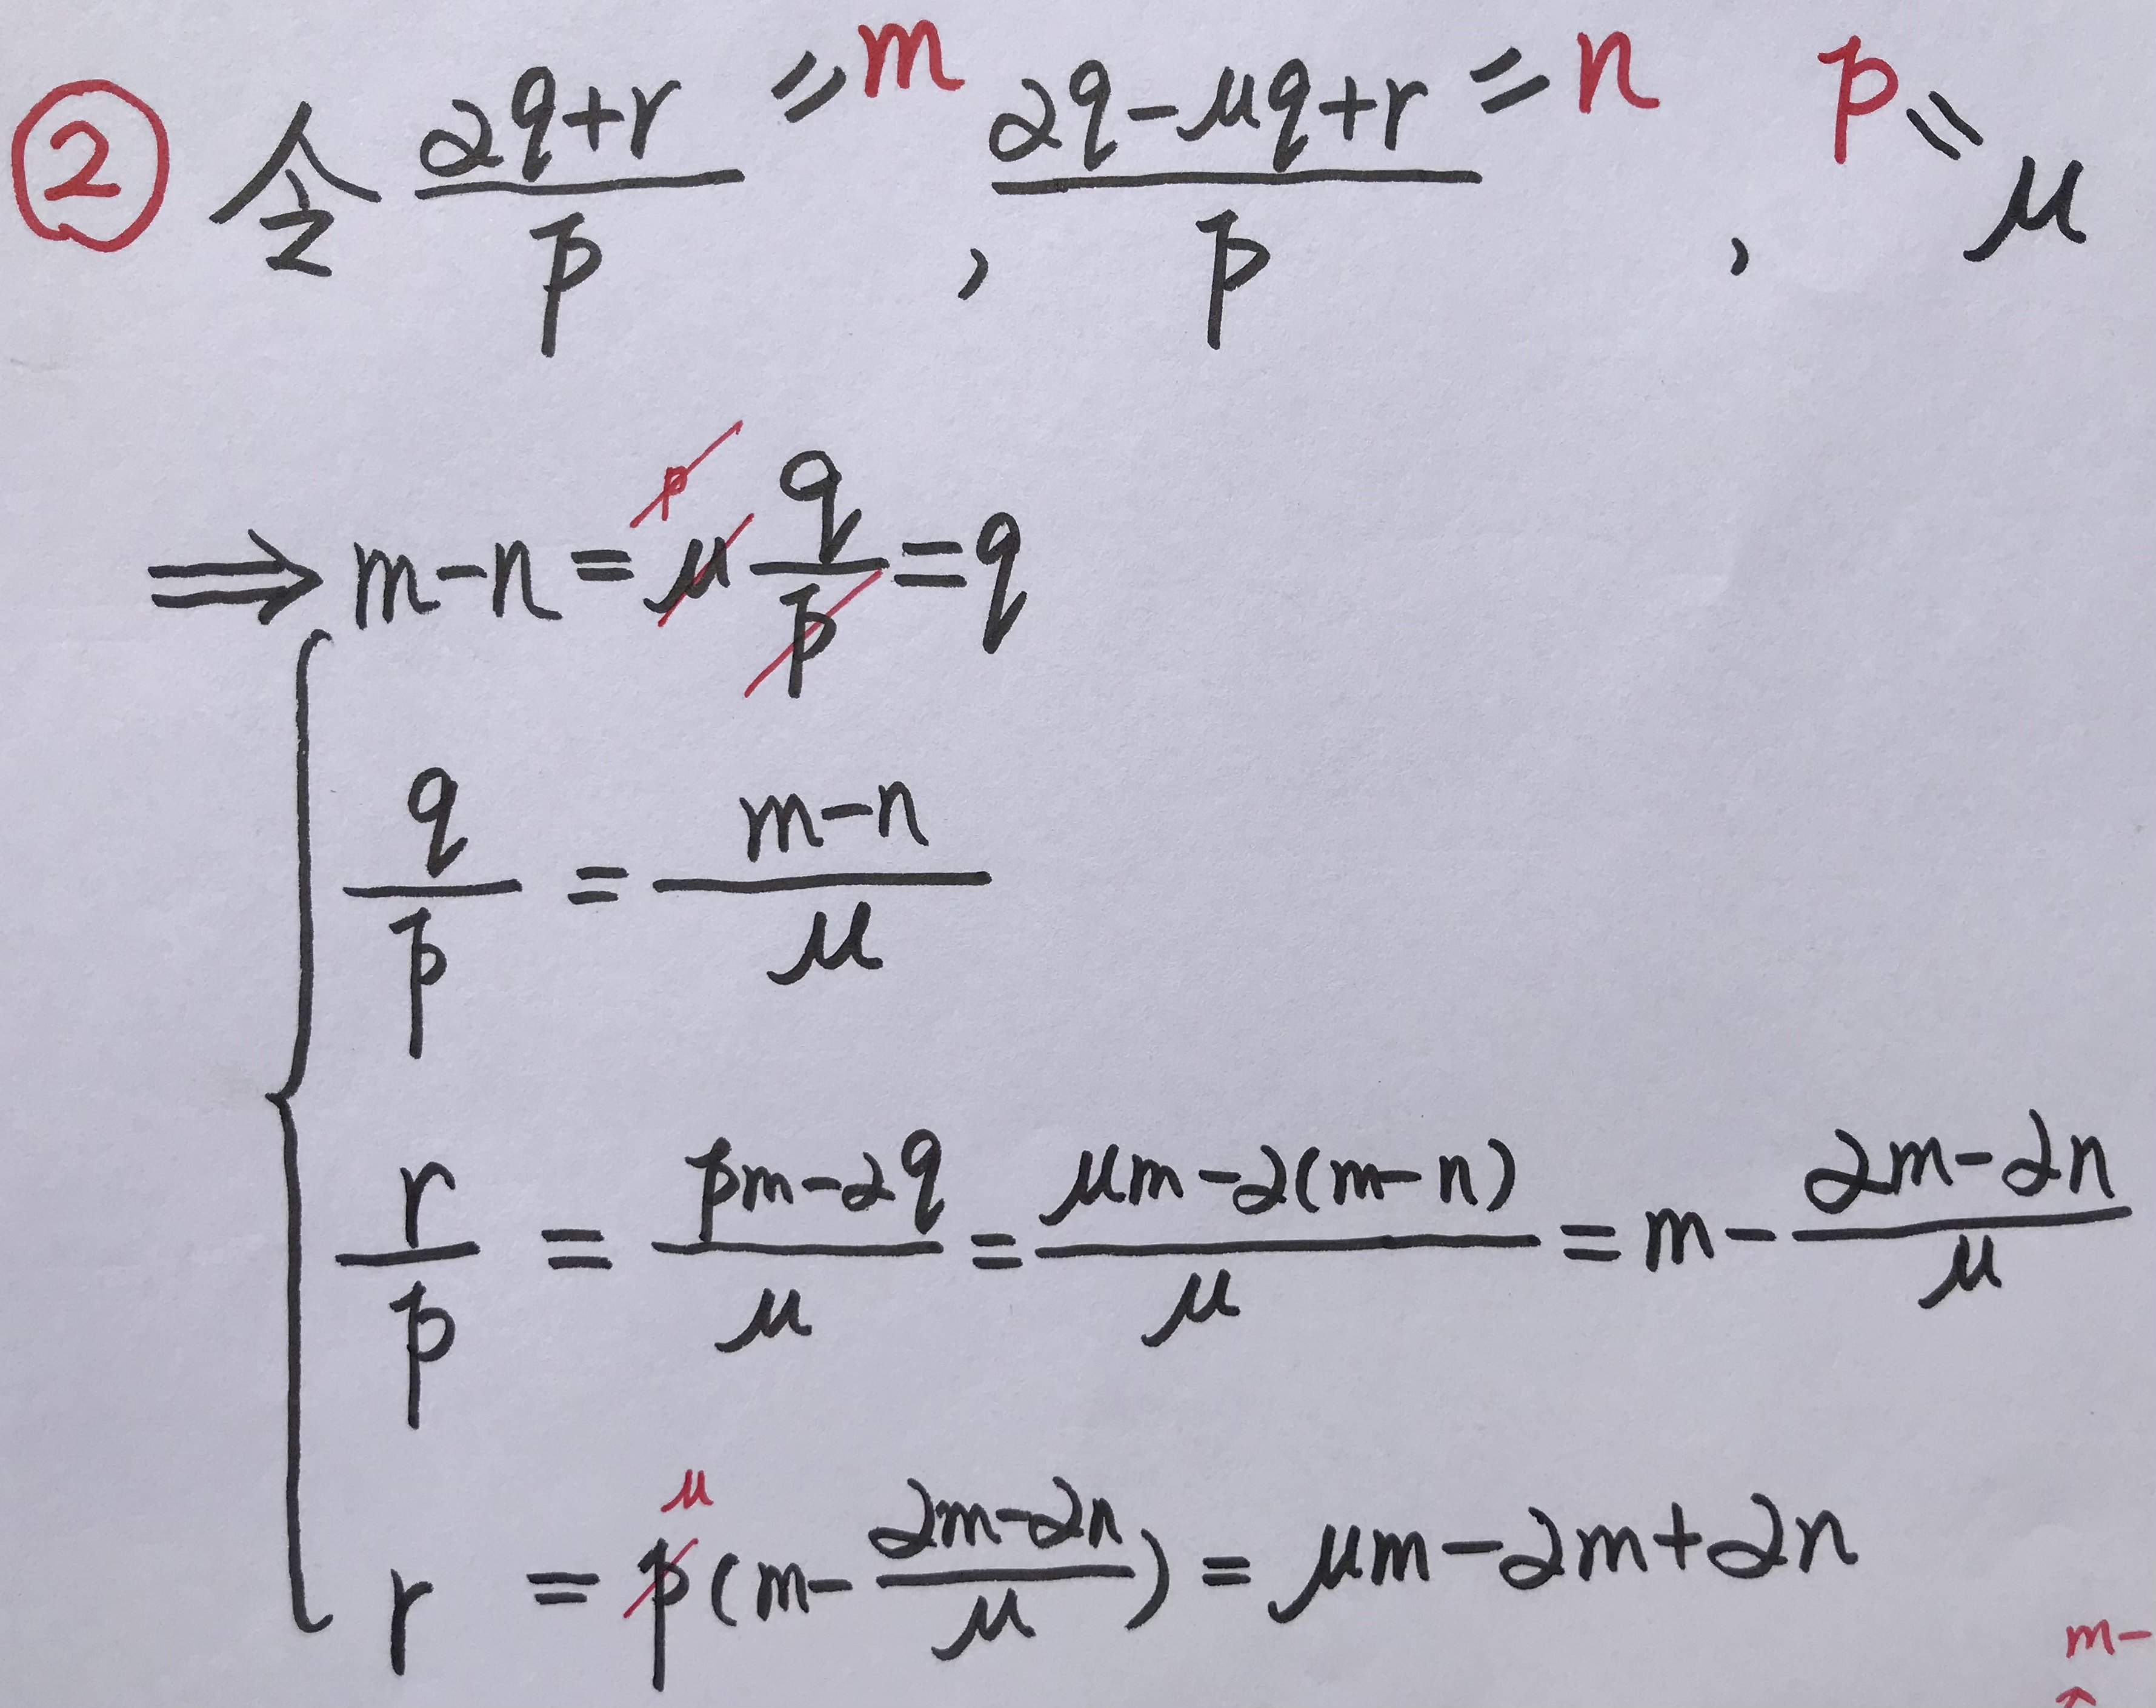 ② 令 \frac{2q+r}{p} = m , \frac{2q-μq+r}{p} = n , p = μ
⇒ m-n = μ \frac{q}{p} = q
\frac{q}{p} = \frac{m-n}{μ}
\frac{r}{p} = \frac{pm-2q}{μ} = \frac{μm-2(m-n)}{μ} = m - \frac{2m-2n}{μ}
r = p(m - \frac{2m-2n}{μ}) = μm-2m+2n
m-